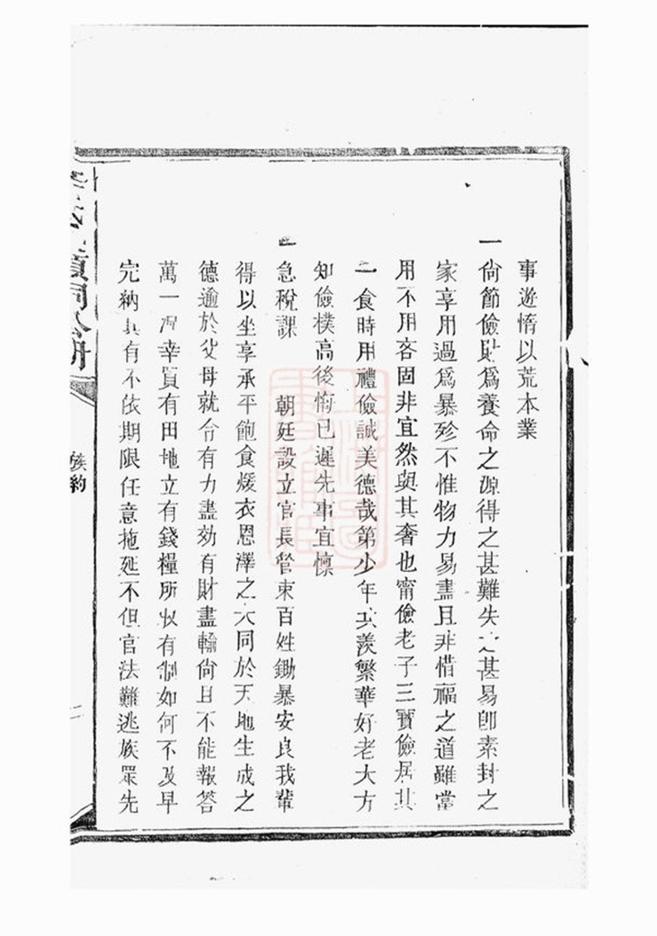 事遊惰以荒本業
一尙節儉財爲養命之源得之甚難失之甚易卽素封之
家享用過爲暴殄不惟物力易盡且非惜福之道雖當
用不用吝固非宜然與其奢也甯儉老子三寶儉居其
一食時用禮儉誠美德哉第少年羨繁華好老大方
知儉樸高後悔已遲先事宜懍
一急稅課 朝廷設立官長管束百姓鋤暴安良我輩
得以坐享承平飽食煖衣恩澤之大同於天地生成之
德逾於父母就令有力盡効有財盡輸尙且不能報答
萬一况幸買有田地立有錢糧所收有制如何不及早
完納其有不依期限任意拖延不但官法難逃族眾先
族約
二